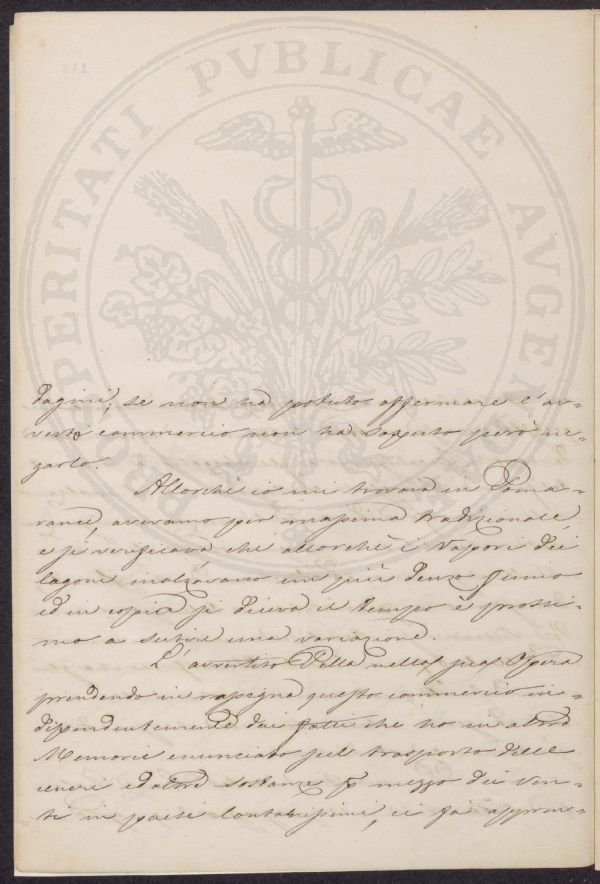 PROSPERITATI PVBLICAE AVGENDAE
dagini, se non ha potuto affermare l'av=
vesto commercio non ha saputo però ne=
garlo.
Allorchè io mi trovava in Poma=
rance, avevamo per massima tradizionale,
e si verificava che allorchè i Vapori dei
lagoni inalzavano un più denso fumo
ed in copia si diceva il tempo è prossi=
mo a subire una variazione.
L'avvertito Pilla nella sua Opera
prendendo in rassegna questo commercio in=
dipendentemente dai fatti che ho in altra
Memoria enunciato sul trasporto delle
ceneri ed altre sostanze p mezzo dei ven=
ti in paesi lontanissimi, ci fa appren=